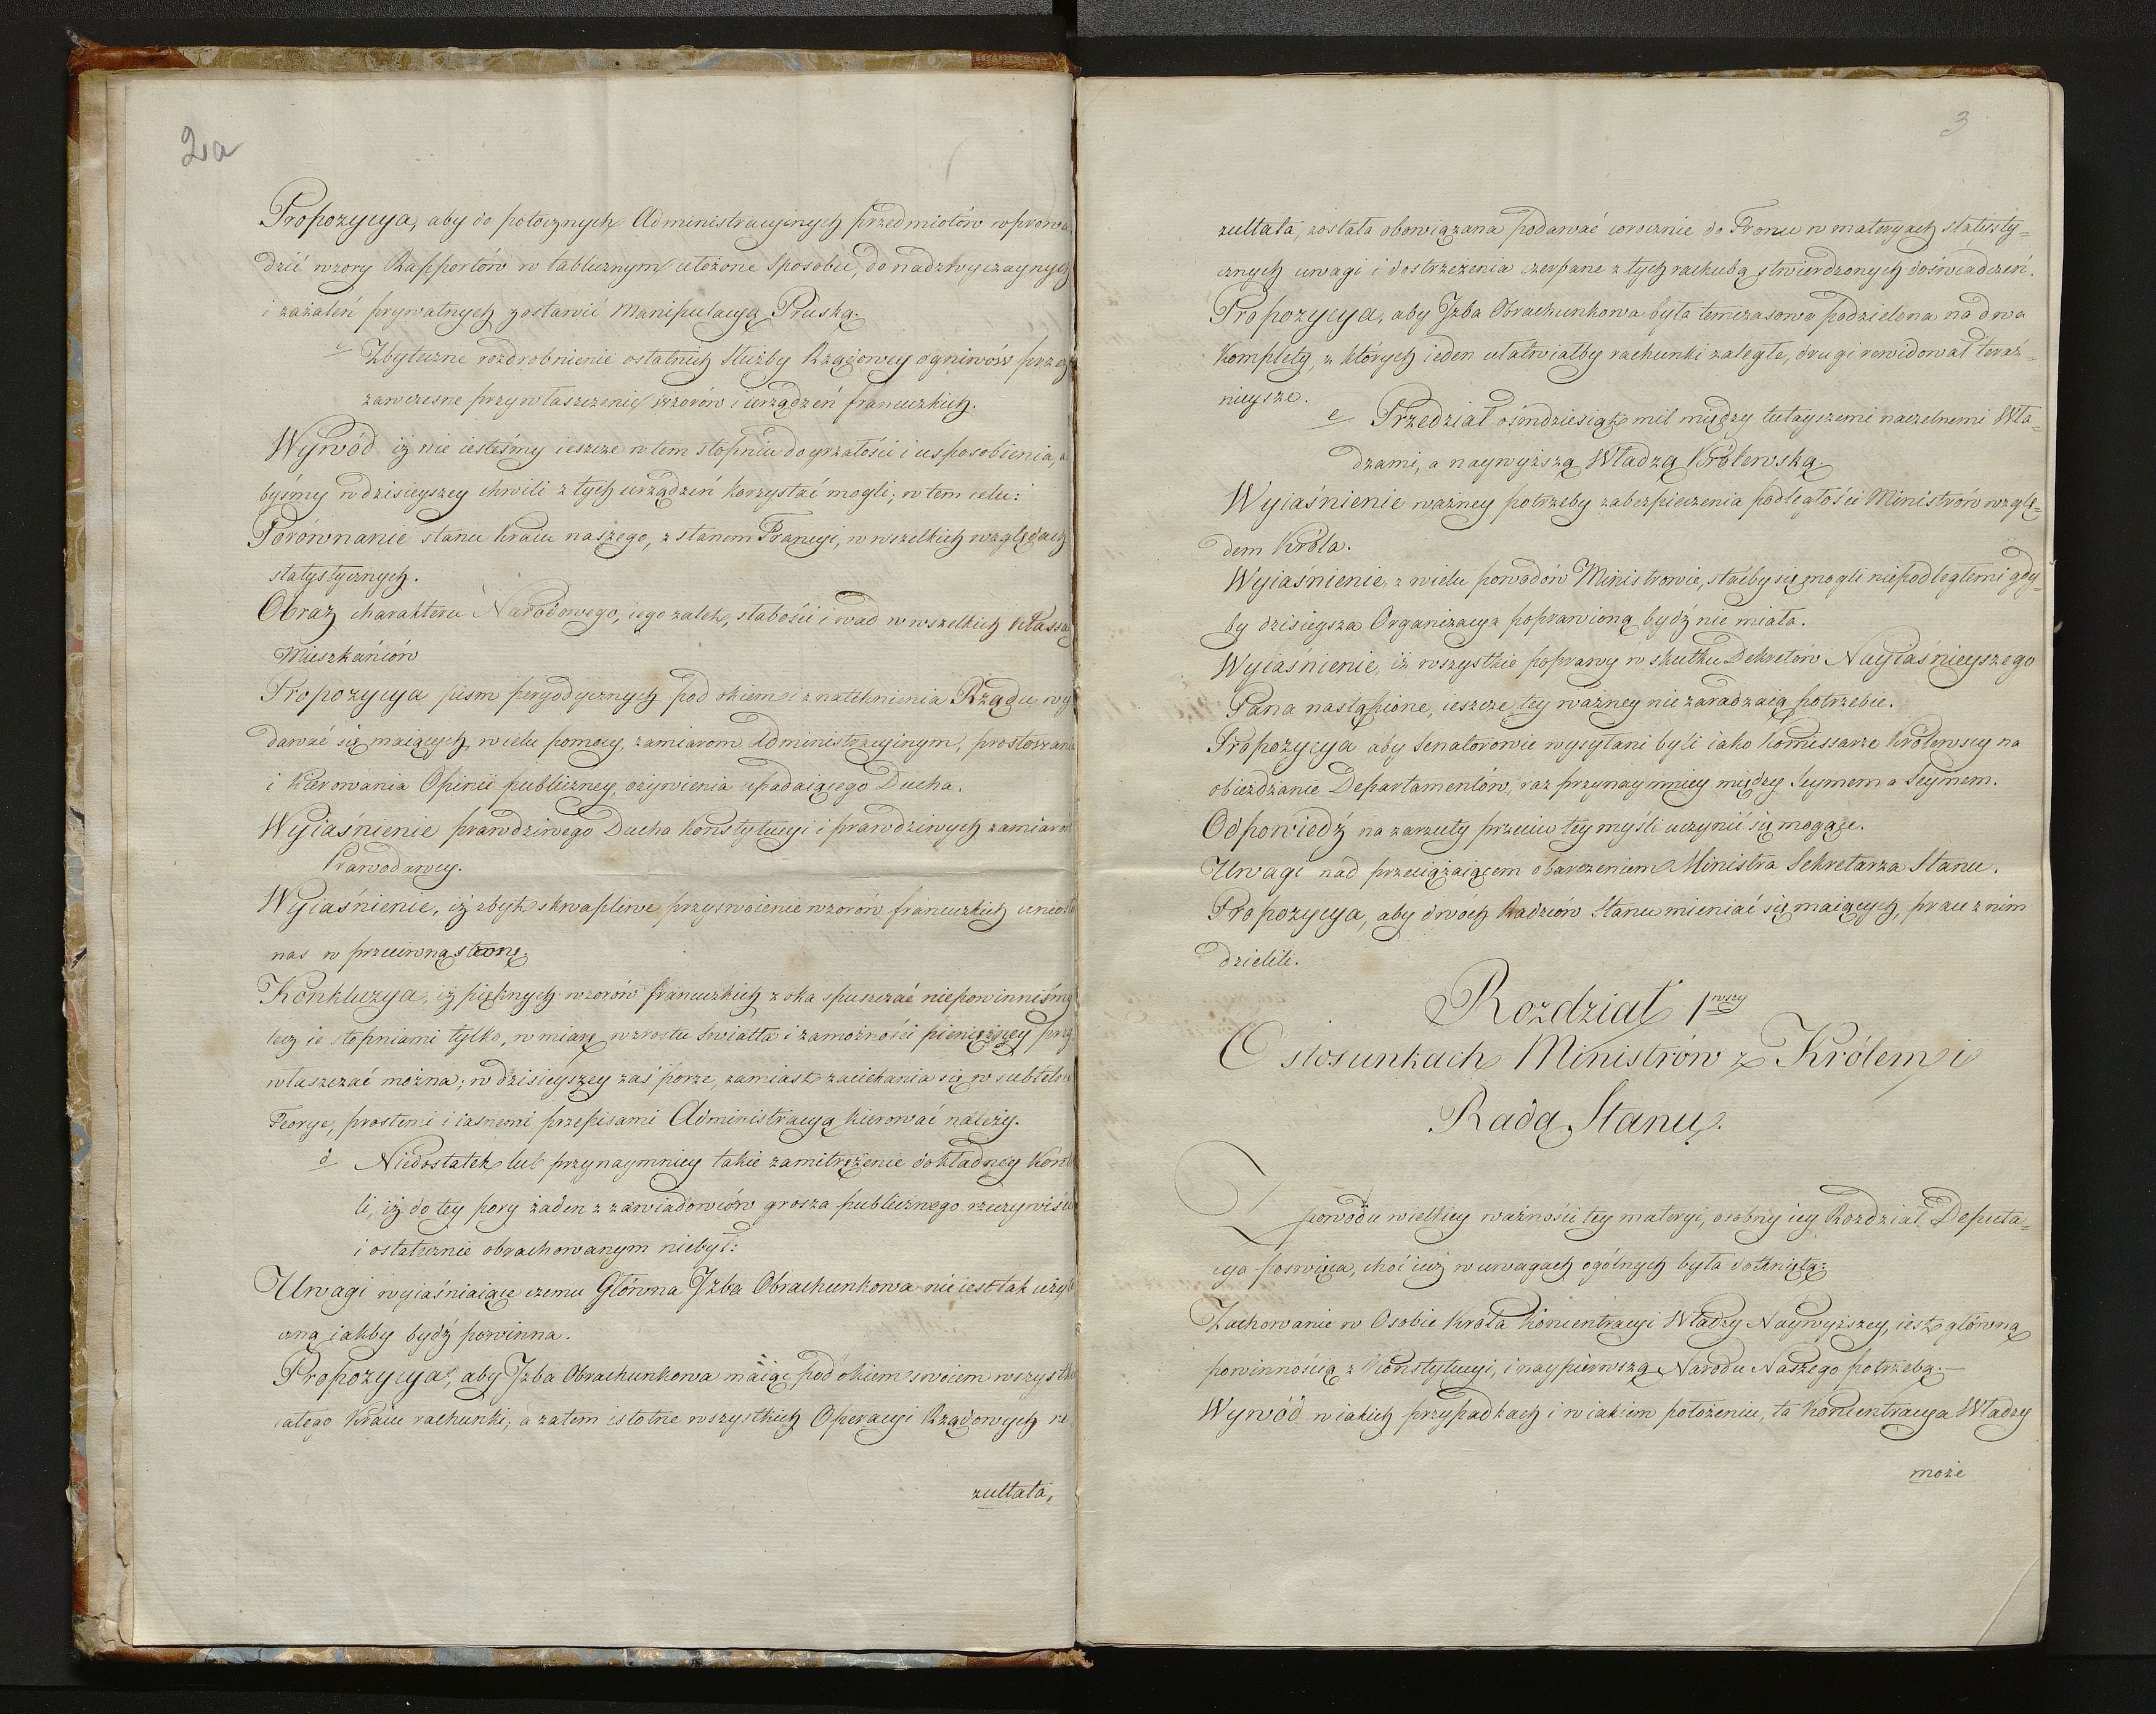 2a
Propozycya, aby do potocznych Administracyinych przedmiotów wprowa
dzić wzory Rapportów w tablicznym ułożone Sposobie, do nadzwyczaynych
i zażaleń prywatnych zostawić Manipulacyą Pruską.
c Zbyteczne rozdrobnienie ostatnich Służby Rządowey ogniwów przez
zawczesne przywłaszczenie wzorów i urządzeń francuzkich.
Wywód iż nie iesteśmy ieszcze w tem stopniu doyrzałości i usposobienia, a
byśmy w dzisieyszey chwili z tych urządzeń korzystać mogli; w tem celu:
Porównanie stanu kraiu naszego, z stanem Francyi, w wszelkich względach
statystycznych.
Obraz charakteru Narodowego, iego zalet, słabości i wad w wszelkich klassach
Mieszkańców
Propozycya pism peryodycznych pod okiem i z natchnienia Rządu wy
dawać się maiących, w celu pomocy, zamiarom Administracyinym, prostowania
i kierowania Opinii publiczney, ożywienia upadaiącego Ducha.
Wyiaśnienie prawdziwego Ducha Konstytucyi i prawdziwych zamiarów
Prawodawcy.
Wyiaśnienie, iż zbyt skwapliwe przyswoienie wzorów francuzkich uniosło
nas w przeciwną stronę.
Konkluzya, iż pięknych wzorów francuzkich z oka spuszczać niepowinniśmy
lecz ie stopniami tylko, w miarę wzrostu światła i zamożności pieniężney przy
właszczać można; w dzisieyszey zaś porze, zamiast zaciekania się w subtelne
Teorye, prostemi i iasnemi przepisami Administracyą kierować należy.
d Niedostatek lub przynaymniey takie zamitrężenie dokładney Kontro
li, iż do tey pory żaden z zawiadowców grosza publicznego rzeczywiście
i ostatecznie obrachowanym niebył:
Uwagi wyiaśniaiące czemu Główna Jzba Obrachunkowa nie iest tak użyte
czną iakby bydź powinna.
Propozycya, aby Jzba Obrachunkowa maiąc pod okiem swoiem wszystkie
całego Kraiu rachunki, a zatem istotne wszystkich Operacyi Rządowych re
zultata,
3
zultata, została obowiązana podawać corocznie do Tronu w materyach statysty=
cznych uwagi i dostrzeżenia czerpane z tych rachubą stwierdzonych doświadczeń.
Propozycya, aby Jzba Obrachunkowa była temczasowo podzielona na dwa
Komplety, z których ieden ułatwiałby rachunki zaległe, drugi rewidował teraź=
nieysze.
e Przedział ośmdziesiąt mil między tuteyszemi naczelnemi Wła=
dzami, a naywyższą Władzą Królewską.
Wyiaśnienie ważney potrzeby zabezpieczenia podległości Ministrów wzglę=
dem Króla.
Wyiaśnienie, z wielu powodów Ministrowie, staćby się mogli niepodległemi gdy=
by dzisieysza Organizacya poprawioną bydź nie miała.
Wyiaśnienie, iż wszystkie poprawy w skutku Dekretów Nayiaśnieyszego
Pana nastąpione, ieszcze tey ważney nie zaradzaią potrzebie.
Propozycya aby Senatorowie wysyłani byli iako Komissarze Królewscy na
obieżdżanie Departamentów, raz przynaymniey między Seymem a Seymem.
Odpowiedź na zarzuty przeciw tey myśli uczynić się mogące.
Uwagi nad przeciążaiącem obarczeniem Ministra Sekretarza Stanu.
Propozycya, aby dwóch Radzców Stanu mieniać się maiących, prace z nim
dzielili.
Rozdział 1wszy
O stosunkach Ministrów z Królem i
Radą Stanu.
Z powodu wielkiey ważności tey materyi, osobny iey Rozdział Deputa=
cya poswięca, choć iuż w uwagach ogólnych była dotkniętą:
Zachowanie w Osobie Króla Koncentracyi Władzy Naywyższey, iest główną
powinnością z Konstytucyi, i naypierwszą Narodu Naszego potrzebą.—
Wywód w iakich przypadkach i w iakiem położeniu, ta Koncentracya Władzy
może